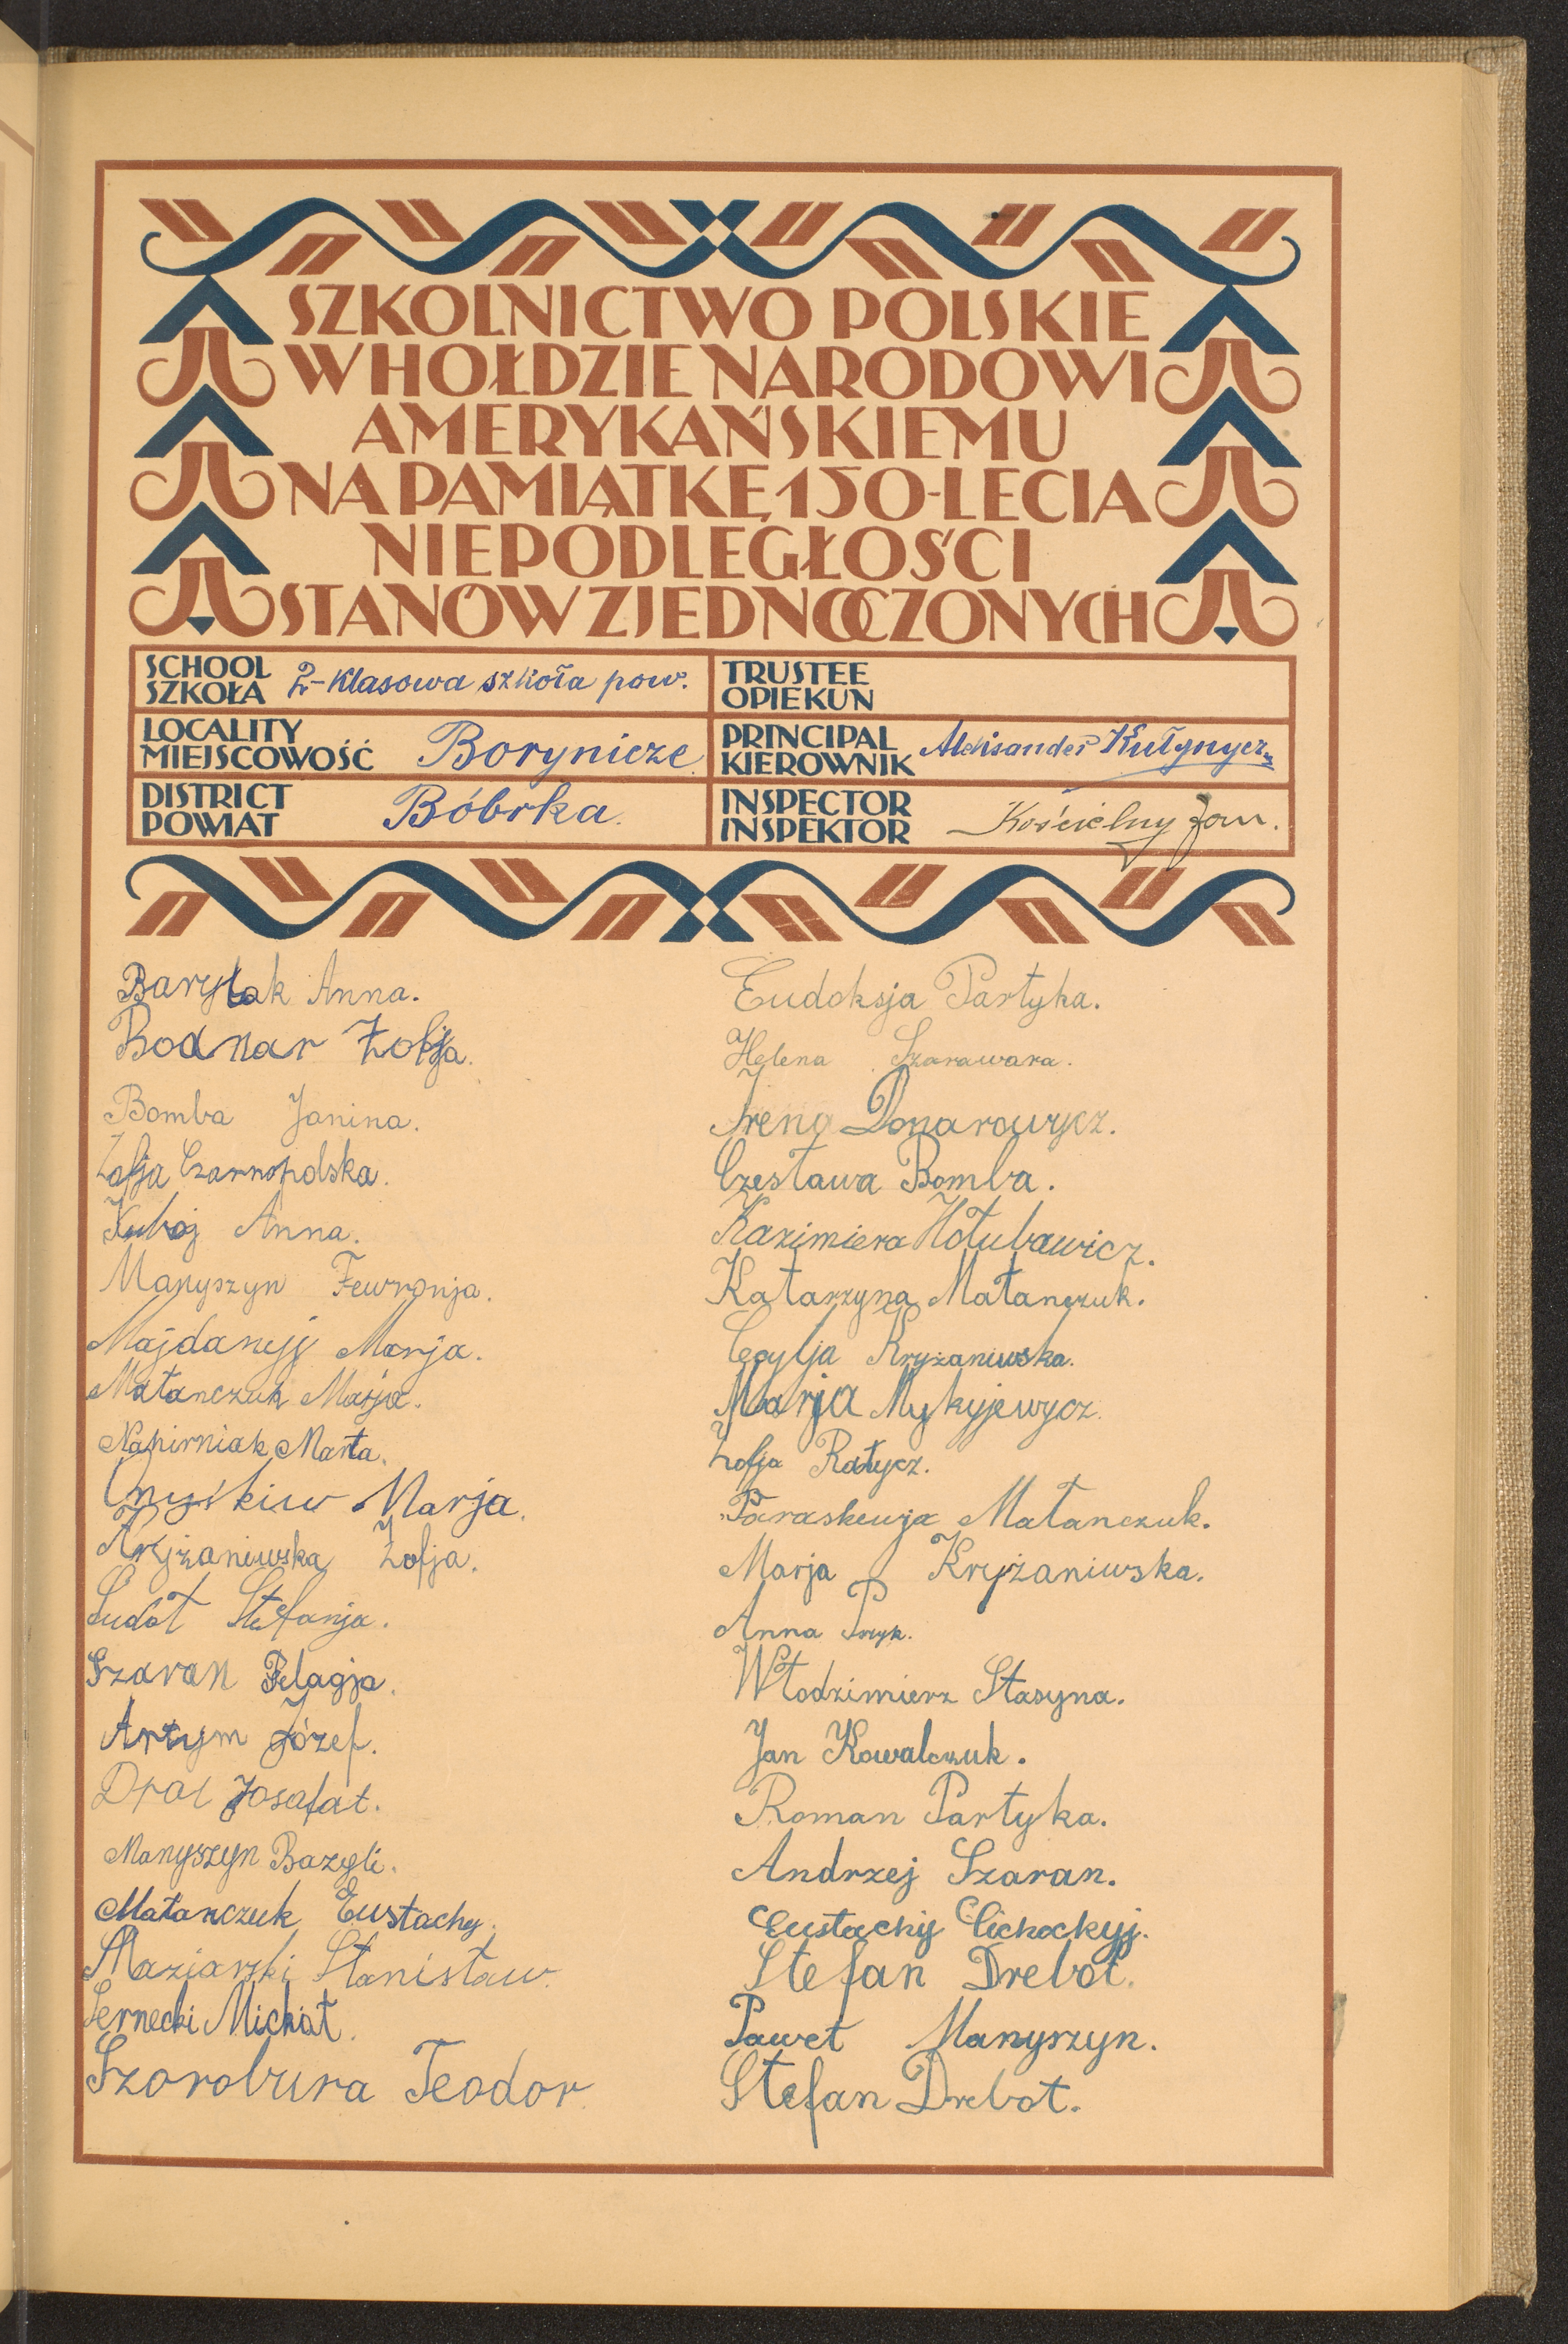 SZKOLNICTWO POLSKIE
W HOŁDZIE NARODOWI
AMERYKAŃSKIEMU
NA PAMIĄTKĘ 150-LECIA
NIEPODLEGŁOŚCI
STANÓW ZJEDNOCZONYCH
SCHOOL
SZKOŁA
2-klasowa szkoła pow.
TRUSTEE
OPIEKUN
LOCALITY
MIEJSCOWOŚĆ
Borynicze
PRINCIPAL
KIEROWNIK
Aleksander Kułynycz
DISTRICT
POWIAT
Bóbrka.
INSPECTOR
INSPEKTOR
Kościelny Jan.
Barylak Anna.
Bodnar Zofja.
Bomba Janina.
Zofja Czarnopolska.
Anna.
Manyszyn Fewronja.
Majdanyj Marja.
Matanczuk Marja.
Napirniak Marta.
Onyskiw Marja.
Kryżaniwska Zofja.
Sudoł Stefanja.
Szaran Pelagja.
Artym Józef.
Drał Josafat.
Manyszyn Bazyli.
Matanczuk Eustachy.
Maziarski Stanisław.
Sernecki Michał.
Szorobura Teodor
Eudoksja Partyka.
Helena Szarawara.
Irena Donarowycz.
Czesława Bomba.
Kazimiera Hołubawicz.
Katarzyna Matanczuk.
Cecylja Kryżaniwska.
Marja Mykyjewycz.
Zofja Ratycz.
Paraskewja Matanczuk.
Marja Kryżaniwska.
Anna
Włodzimierz Stasyna.
Jan Kowalczuk.
Roman Partyka.
Andrzej Szaran.
Eustachij Cichockyj.
Stefan Drebot.
Paweł Manyszyn.
Stefan Drebot.